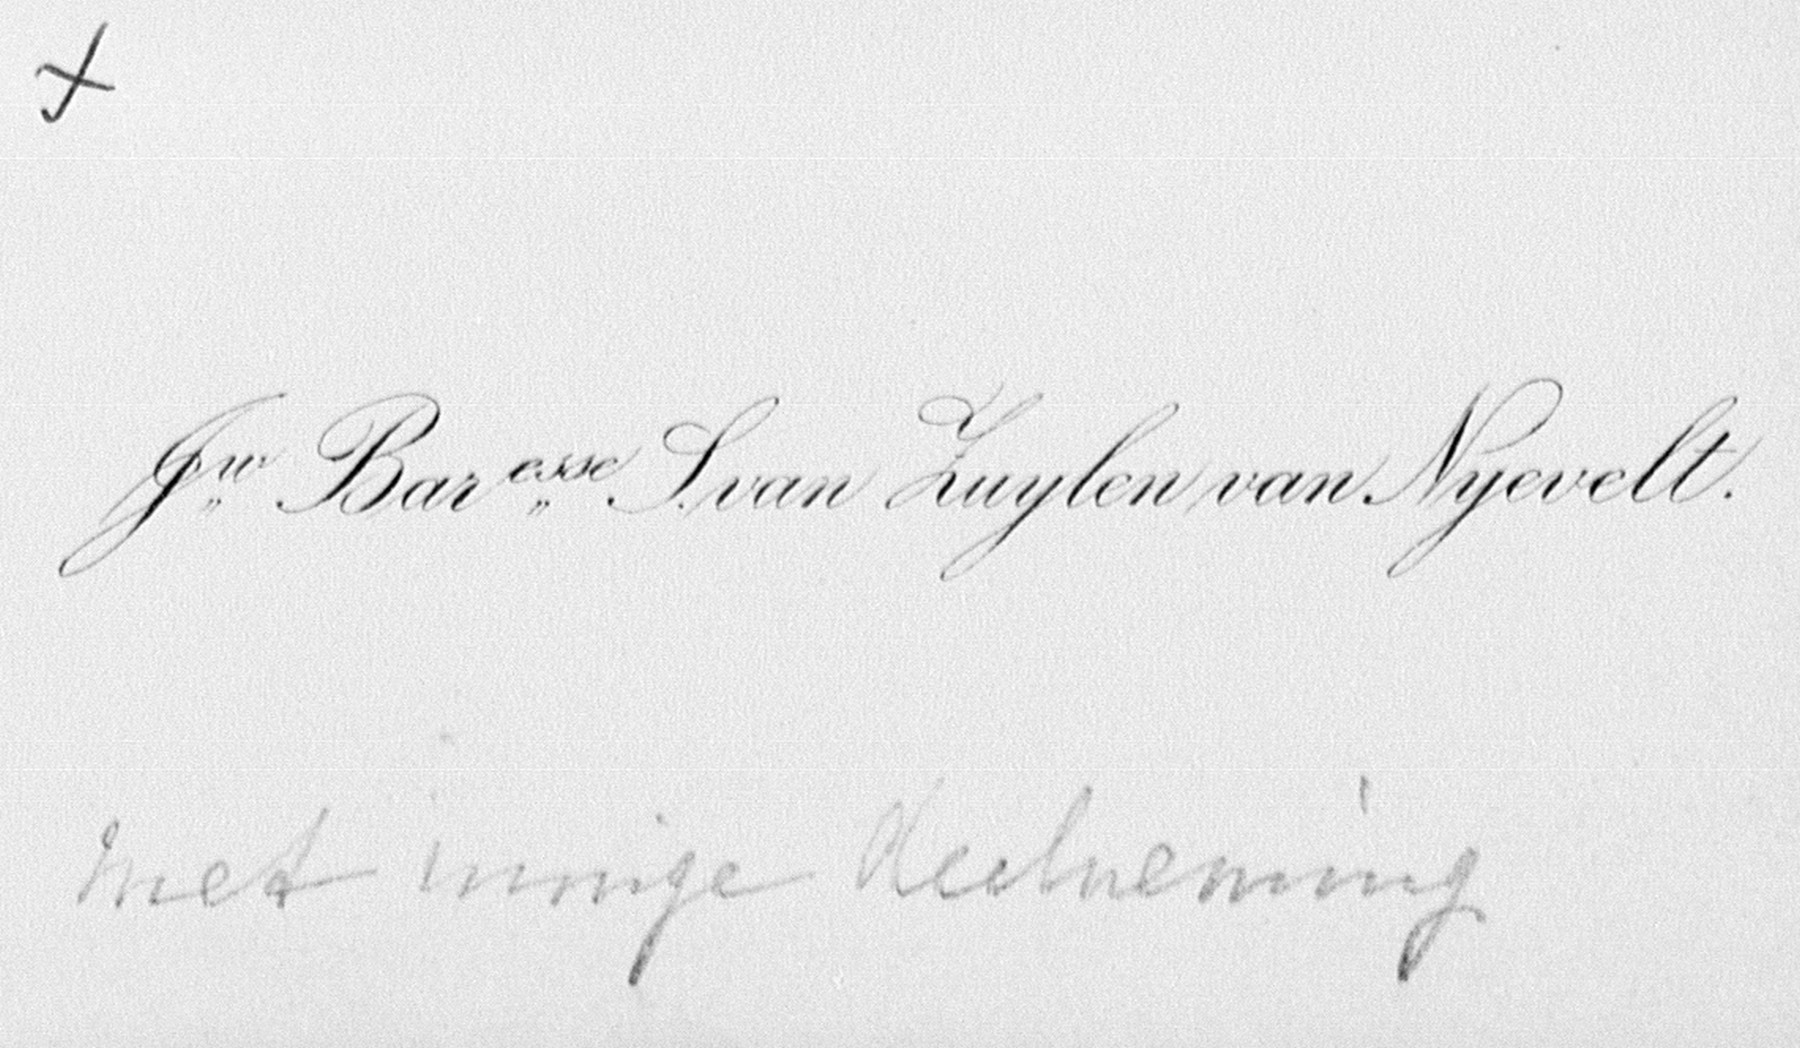 Jw Baresse S. van Zuylen van Nyevelt.
met innige deelneming